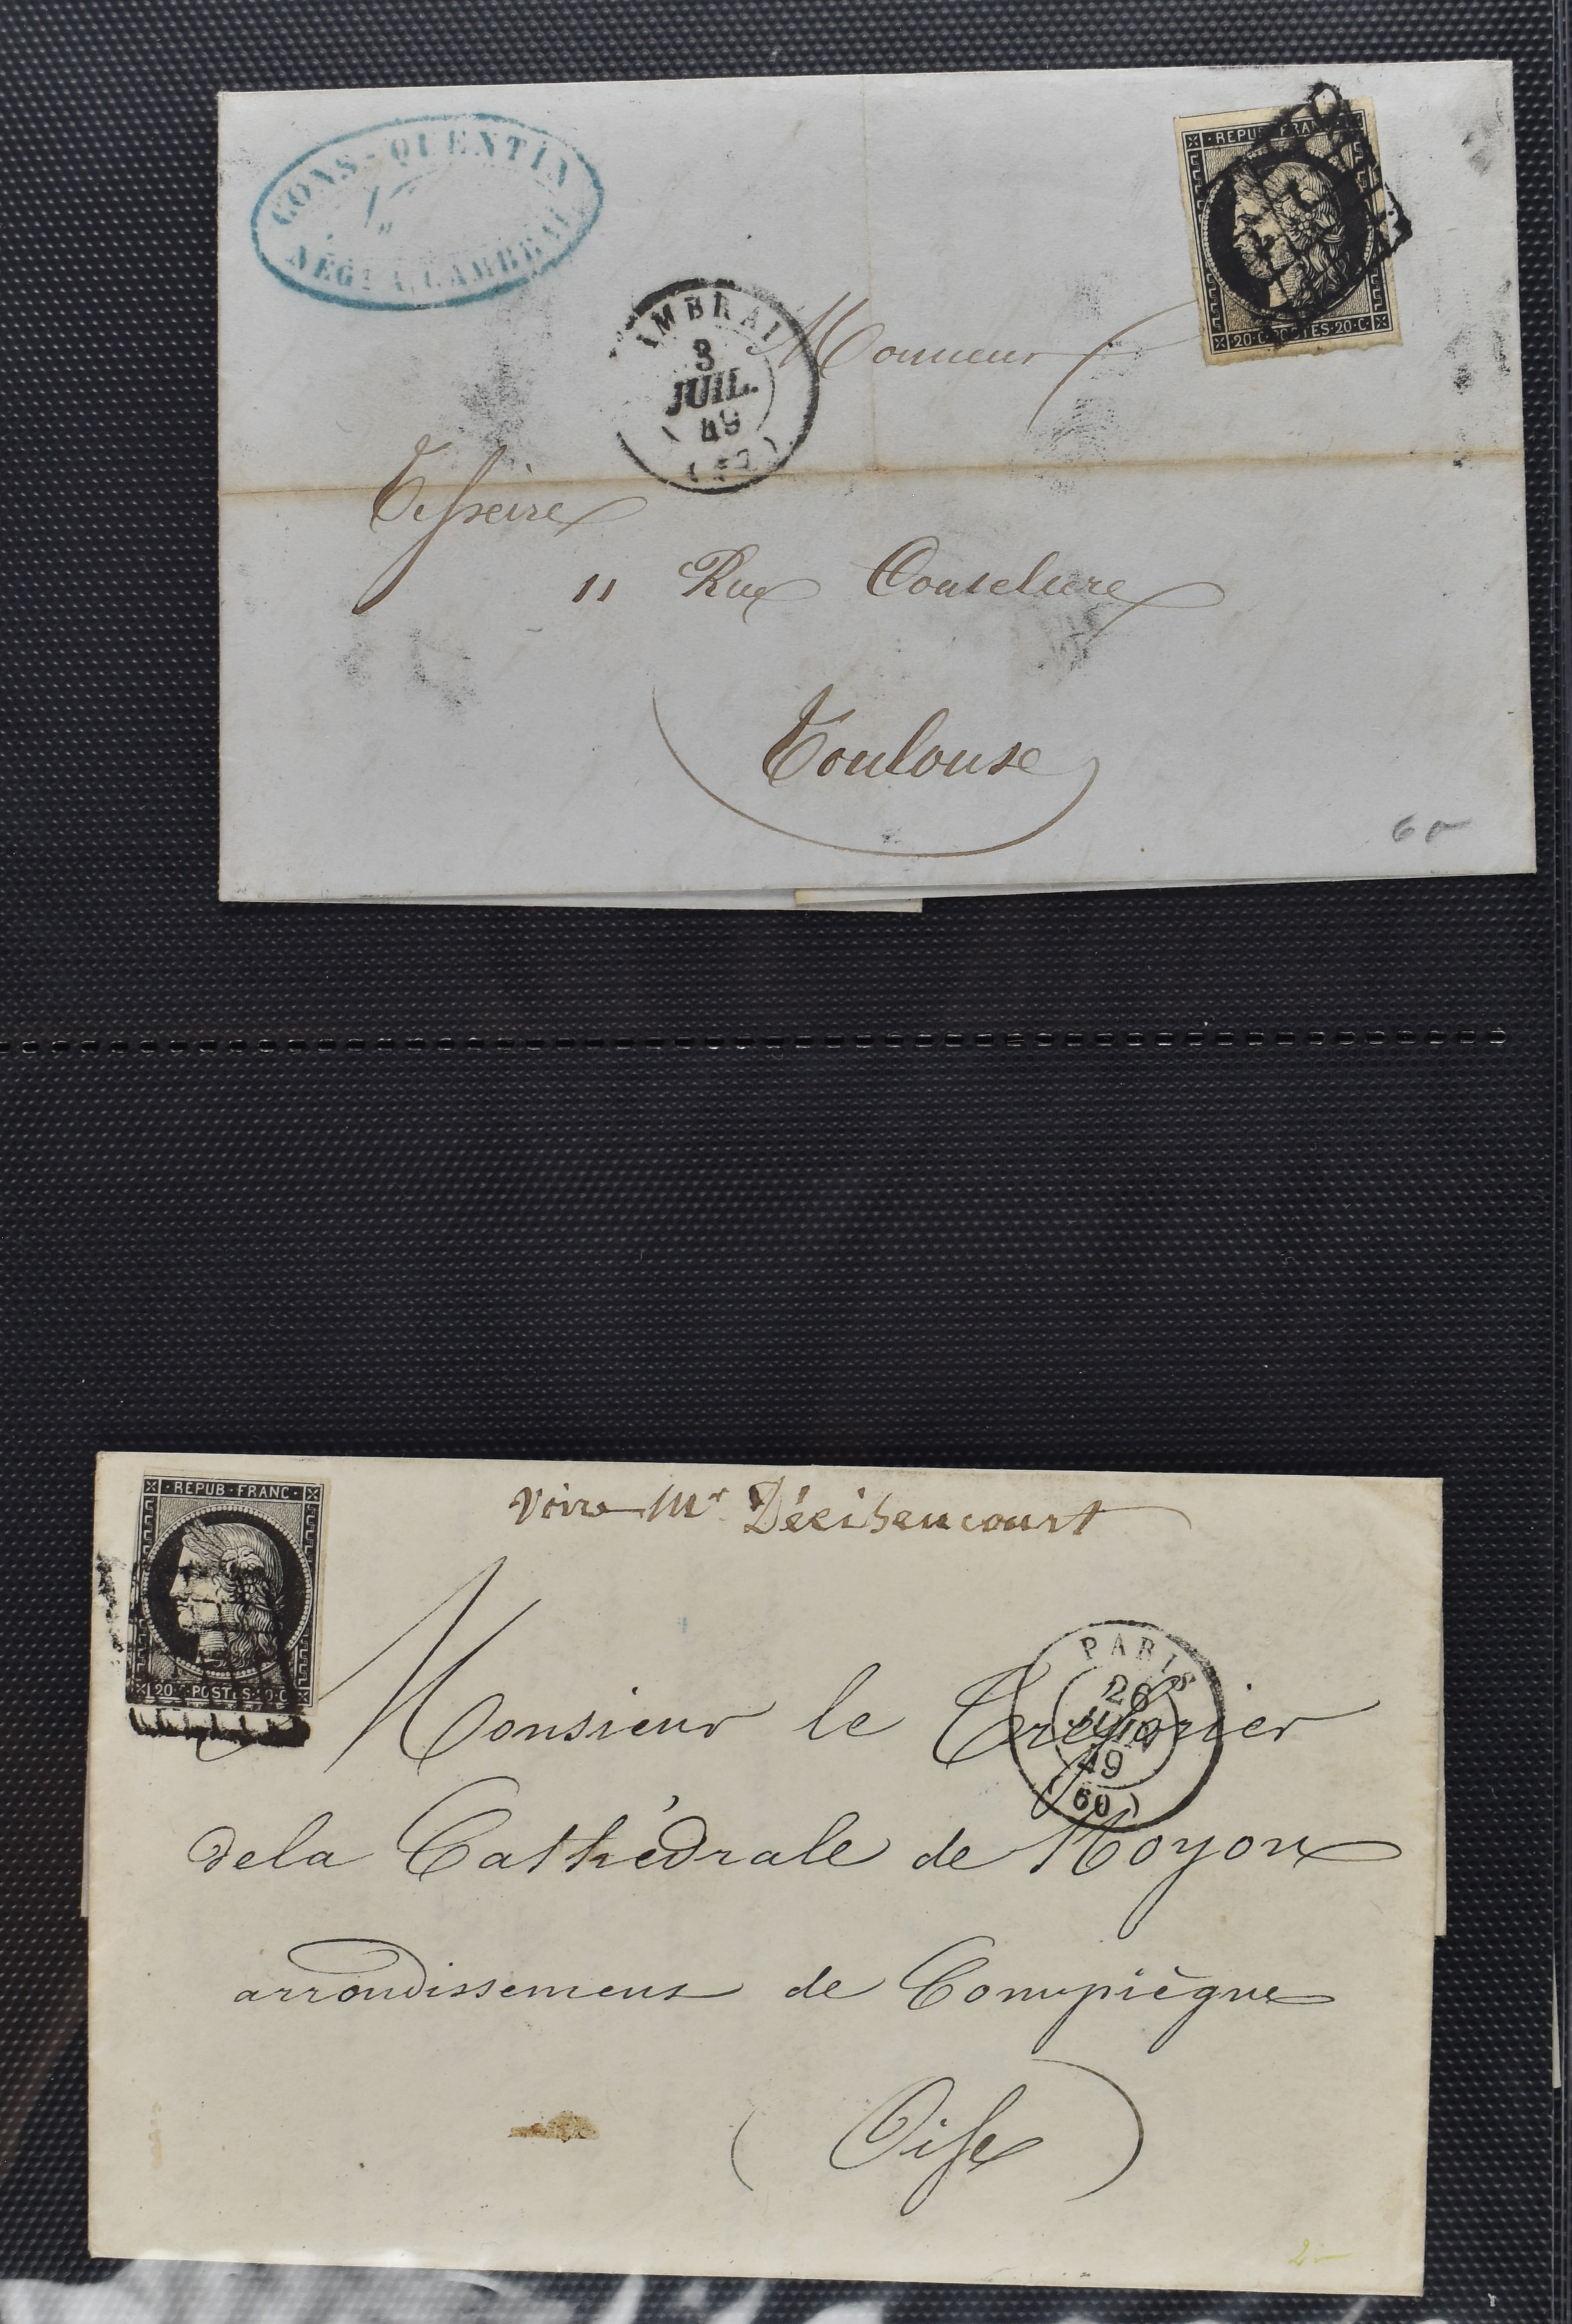 CONS. QUENTIN
NÉGT A CAMBRAI
REPUB FRANC
20 C POSTES 20 C
AMBRAI
3
JUIL.
49
Monsieur
Tesseire
11 Rue
Toulouse
REPUB FRANC
20 C POSTES 20 C
Voir Mr
PARIS
26
JUIN
49
(60)
Monsieur le Tresorier
dela Cathédrale de Noyon
arrondissement de Compiègne
(Oise)